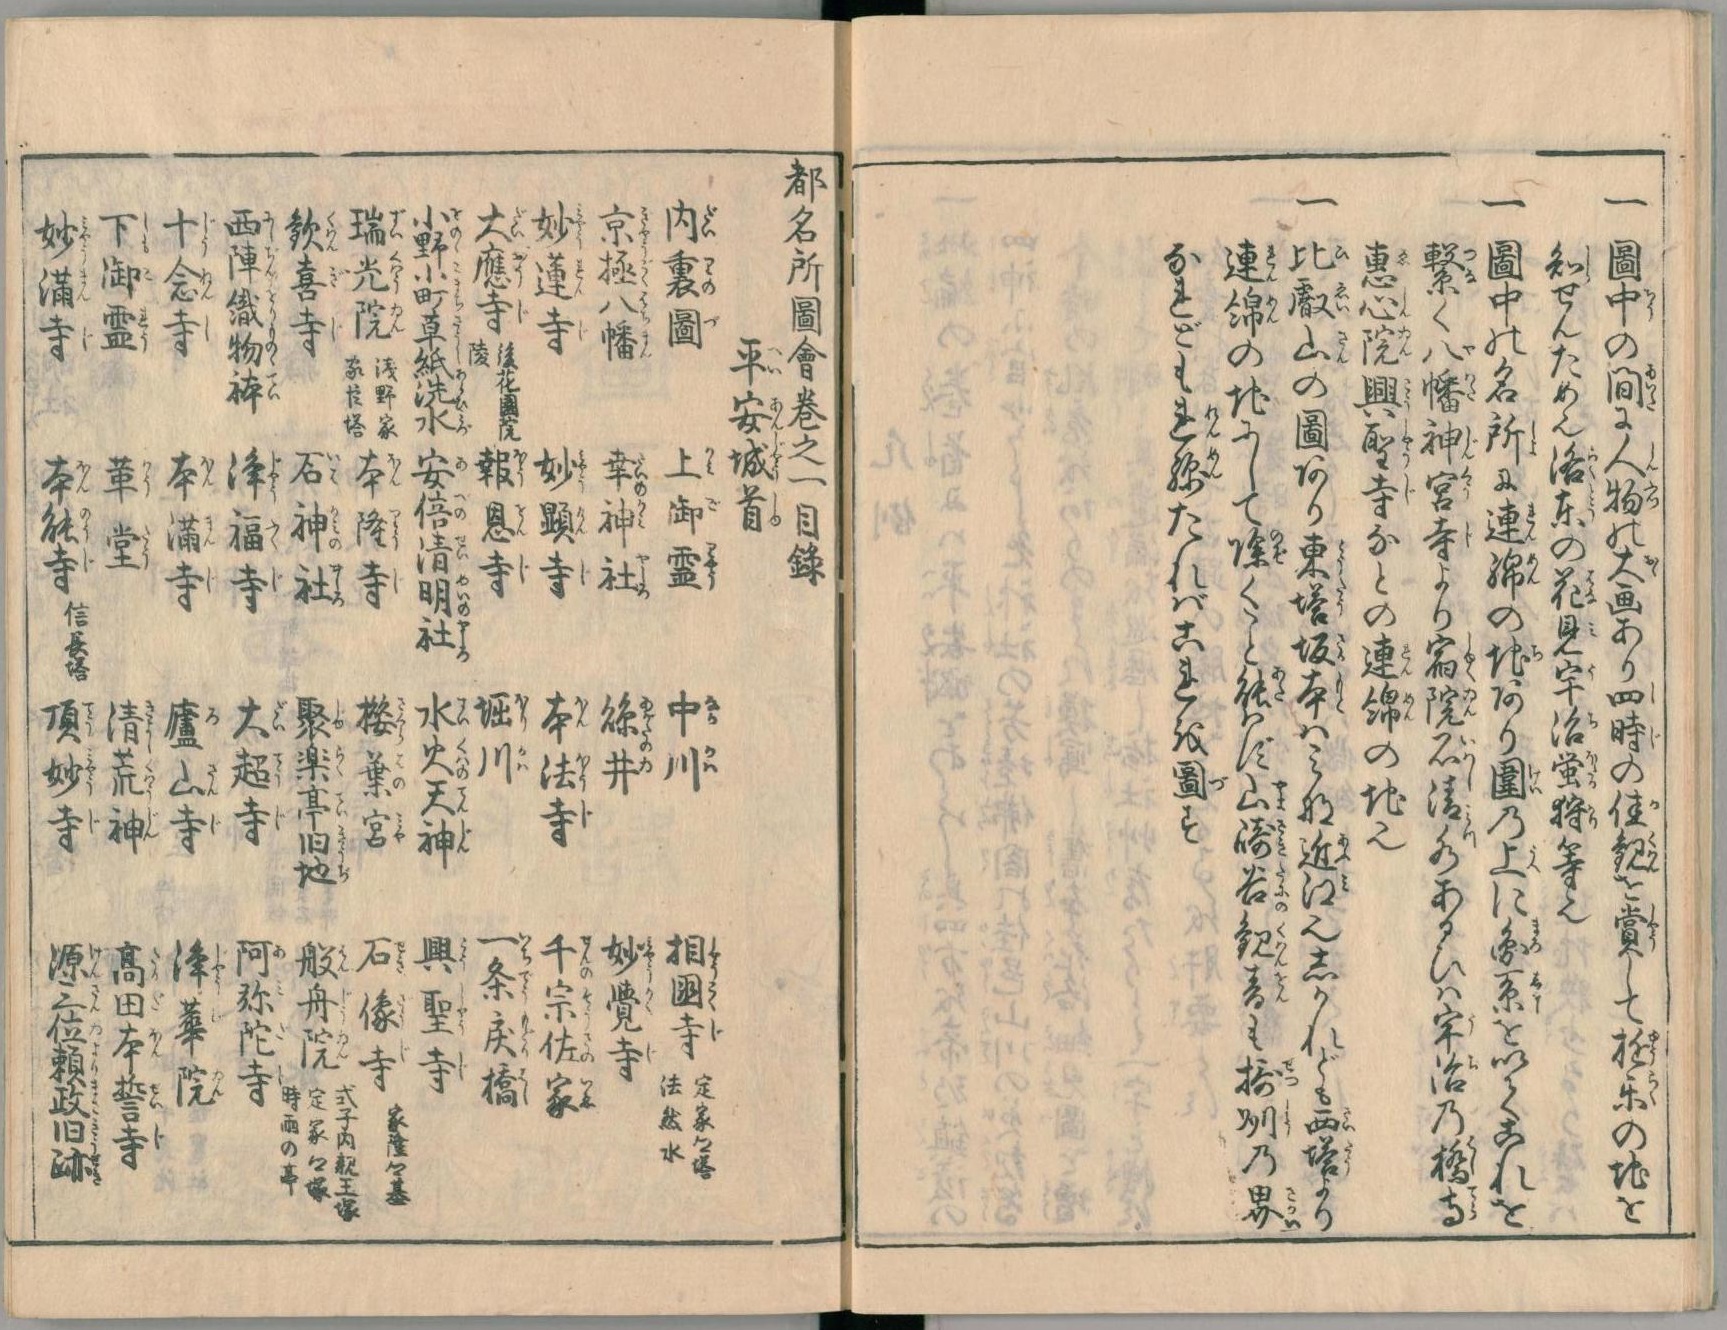 一圖中の間に人物の大画あり四時の佳観を賞して遊楽の地を
知せんため也洛東の花見宇治蛍狩等也
一圖中の名所に連綿の地あり圍の上に象系を以てこれを
繋く八幡神宮寺より宿院石清水あるひハ宇治乃橋寺
惠心院興聖寺などの連綿の地也
一比叡山の圖あり東塔坂本ハ近江也しかれども西塔より
連綿の地にして除くこと能はず山﨑谷観音も摂州乃界
なれどもれんめんたればこれを圖す
都名所圖會卷之一目錄
平安城首
内裏圖　上御霊　中川　相國寺 定家卿塔 法然水
京極八幡　幸神社　絲井　妙覺寺
妙蓮寺　妙顕寺　本法寺　千宗佐家
大應寺 後花園院陵　報恩寺　堀川　一条戻橋
小野小町草紙洗水　安倍清明社　水火天神　興聖寺
瑞光院 浅野家家臣塔　本隆寺　櫻葉宮　石像寺 家隆卿墓
歓喜寺　石神社　聚楽亭旧地　般舟院 式子内親王塚 定家卿塚 時雨の亭
西陣織物　浄福寺　大超寺　阿弥陀寺
十念寺　本満寺　廬山寺　浄華院
下御霊　革堂　清荒神　髙田本誓寺
妙満寺　本能寺 信長塔　頂妙寺　源三位頼政旧跡